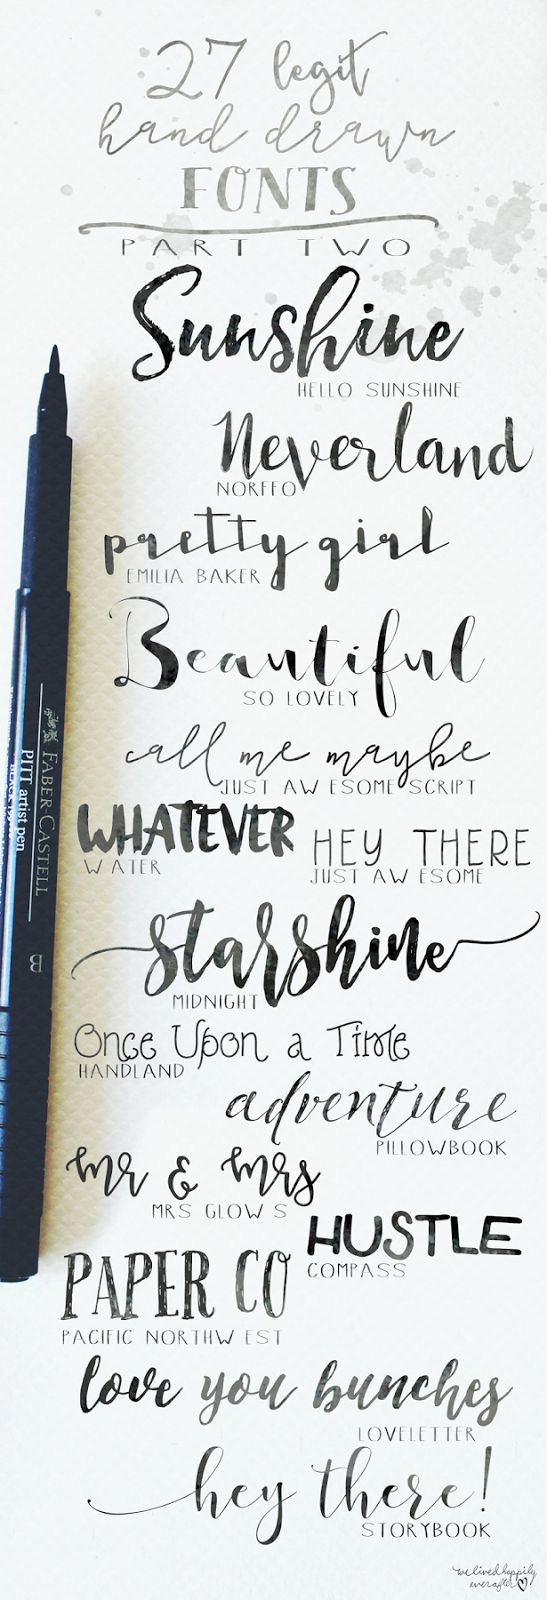 27 legit
hand drawn
FONTS
PART TWO
Sunshine
HELLO SUNSHINE
Neverland
NORFFO
pretty girl
EMILIA BAKER
Beautiful
SO LOVELY
call me maybe
JUST AW ESOME SCRIPT
WHATEVER
W ATER
HEY THERE
JUST AW ESOME
starshine
MIDNIGHT
Once Upon a Time
HANDLAND
adventure
PILLOWBOOK
mr & mrs
MRS GLOW S
HUSTLE
COMPASS
PAPER CO
PACIFIC NORTHW EST
love you bunches
LOVELETTER
hey there!
STORYBOOK
FABER-CASTELL
PITT artist pen
B
we lived happily
ever after